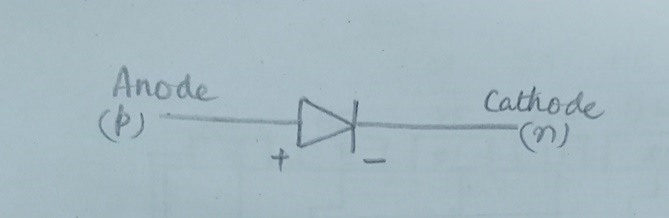 Anode
(p)
Cathode
(n)
+
−